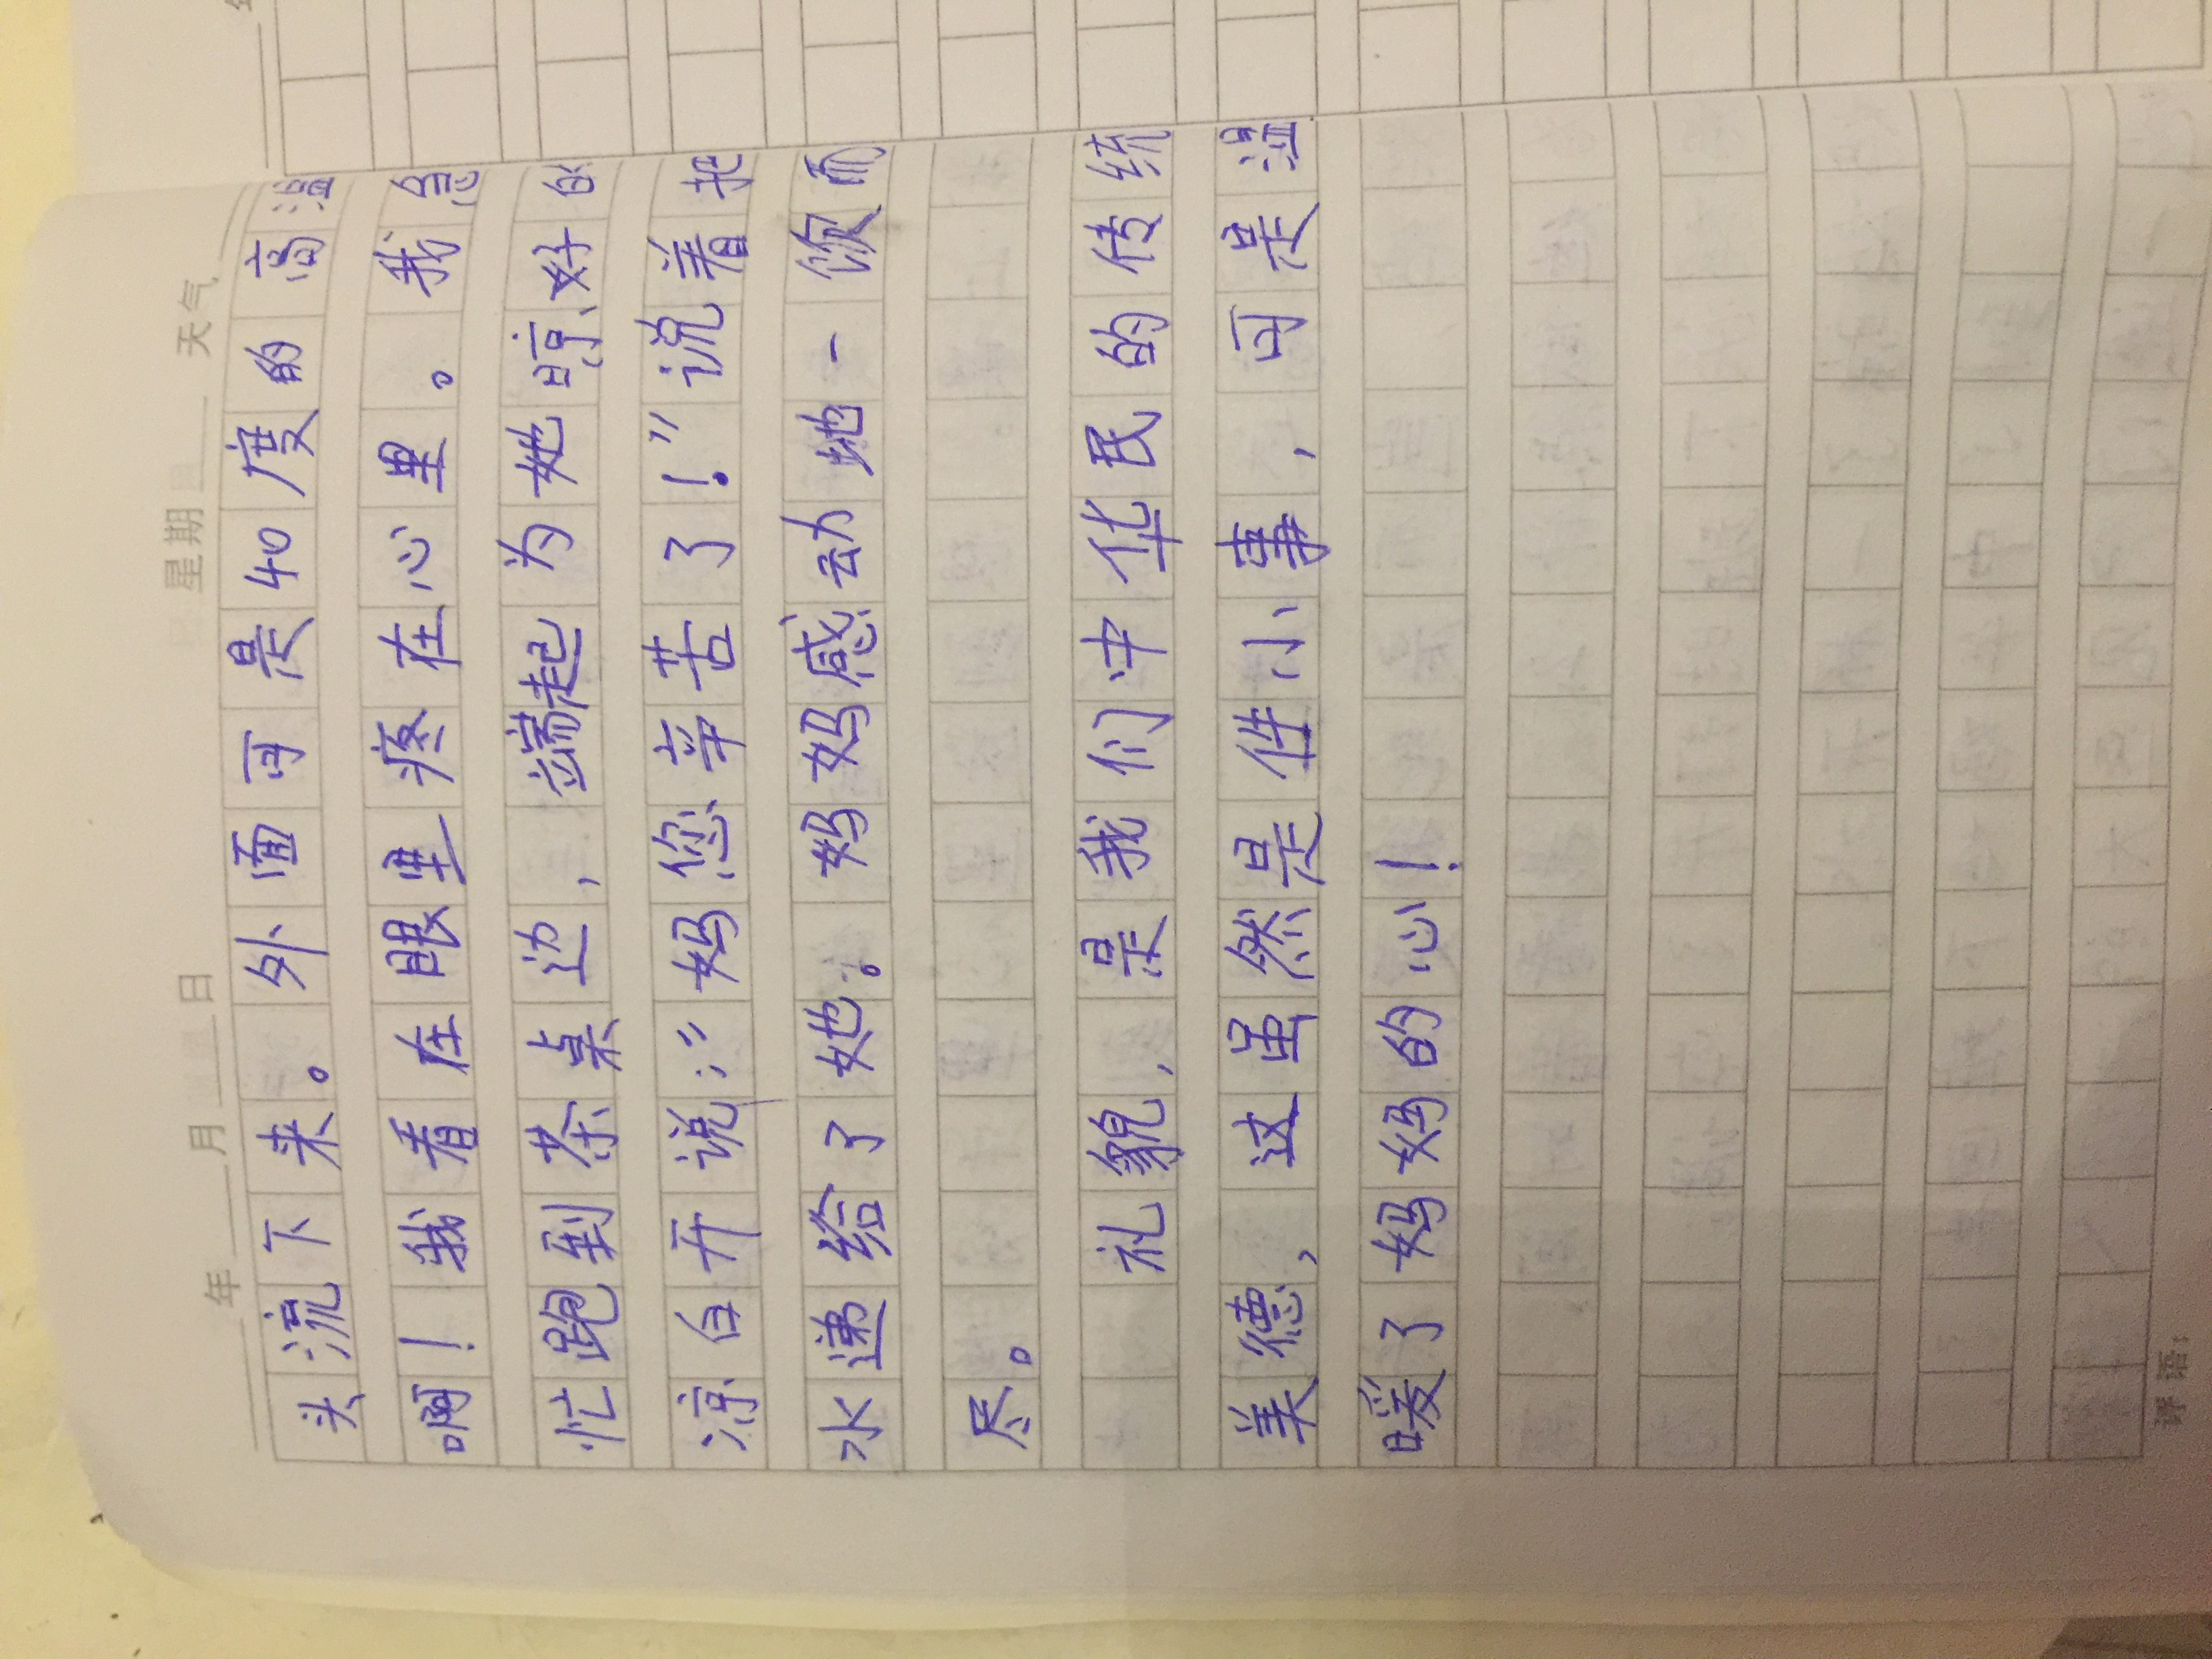 年 月 日 星期 天气
头流下来。外面可是40度的高温
啊！我看在眼里疼在心里。我急
忙跑到茶桌边，端起为她晾好的
凉白开说：“妈您辛苦了！”说着把
水递给了她。妈妈感动地一饮而
尽。
礼貌，是我们中华民的传统
美德，这虽然是件小事，可是温
暖了妈妈的心！
评语：